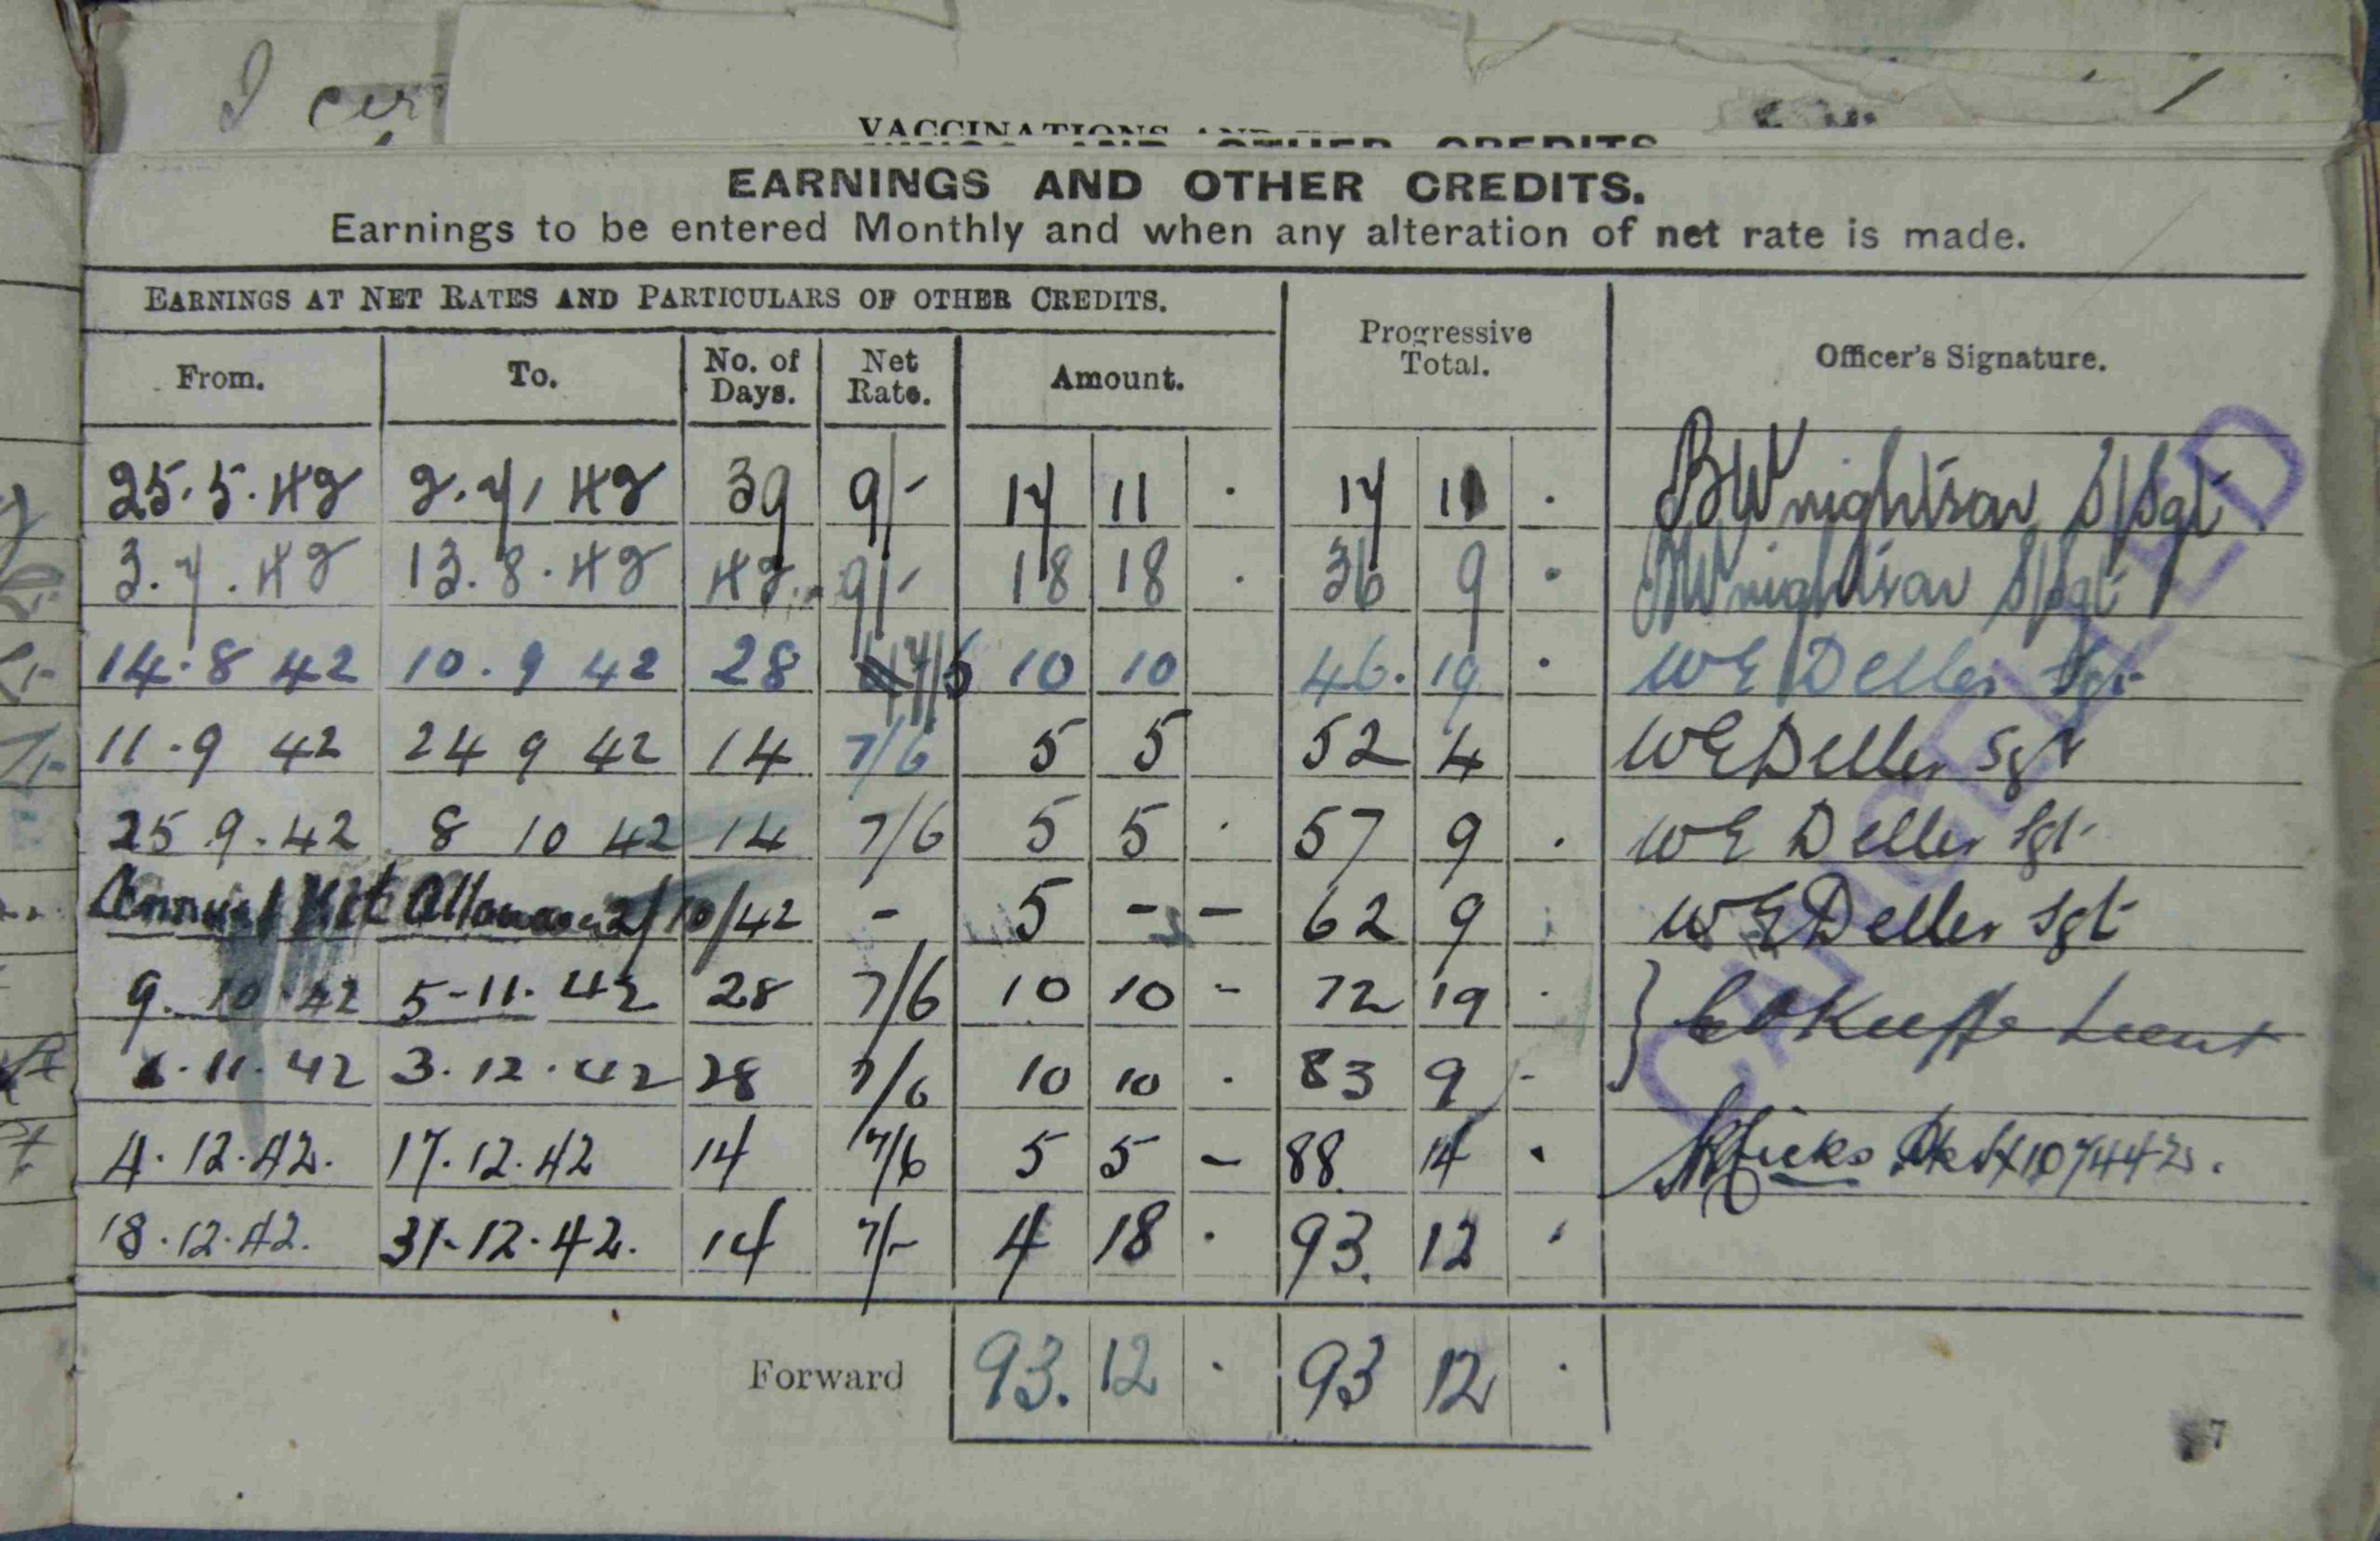 I cer
VACCINATIONS
AND OTHER CREDITS
EARNINGS AND OTHER CREDITS.
Earnings to be entered Monthly and when any alteration of net rate is made.
EARNINGS AT NET RATES AND PARTICULARS OF OTHER CREDITS.
Progressive Total.
Officer's Signature.
From. To. No. of Days. Net Rate. Amount.
25.5.42 2.7.42 39 9/- 17 11 . 17 11 . S/Sgt
3.7.42 13.8.42 42 9/- 18 18 . 36 9 . S/Sgt
14.8 42 10.9 42 28 7/6 10 10 46.19 . W E Deller Sgt
11.9 42 24 9 42 14 7/6 5 5 52 4 W E Deller Sgt
25 9.42 8 10 42 14 7/6 5 5 . 57 9 . W E Deller Sgt
Annual Kit Allowance 2/10/42 - 5 - - 62 9 W E Deller Sgt
9.10.42 5-11.42 28 7/6 10 10 - 72 19 . } O'Keeffe Lieut
6.11.42 3.12.42 28 7/6 10 10 . 83 9 -
4.12.42. 17.12.42 14 7/6 5 5 - 88 14 . Hicks
18.12.42. 31-12.42. 14 7/- 4 18 . 93. 12 .
Forward 93. 12 . 93 12 .
CANCELLED
7